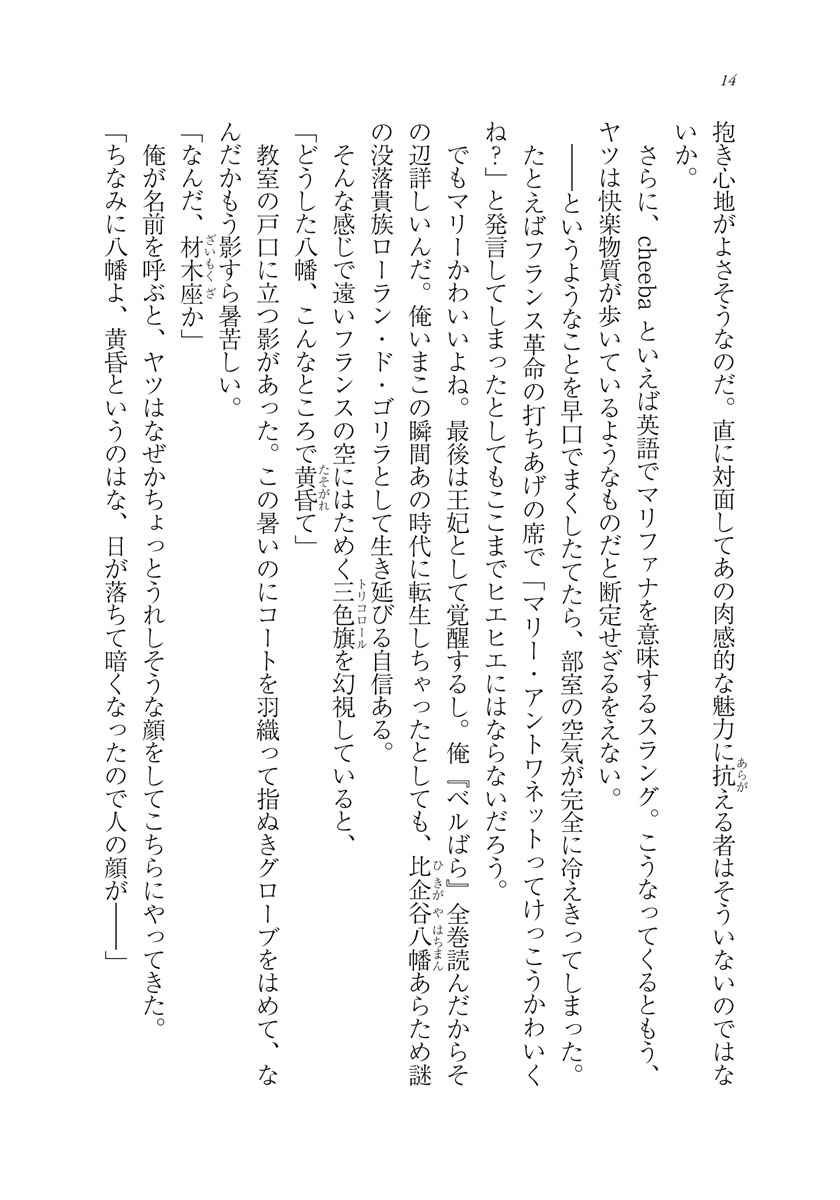 14
抱き心地がよさそうなのだ。直に対面してあの肉感的な魅力に抗える者はそういないのではな
いか。
さらに、cheeba といえば英語でマリファナを意味するスラング。こうなってくるともう、
ヤツは快楽物質が歩いているようなものだと断定せざるをえない。
――というようなことを早口でまくしたてたら、部室の空気が完全に冷えきってしまった。
たとえばフランス革命の打ちあげの席で「マリー・アントワネットってけっこうかわいく
ね？」と発言してしまったとしてもここまでヒエヒエにはならないだろう。
でもマリーかわいいよね。最後は王妃として覚醒するし。俺『ベルばら』全巻読んだからそ
の辺詳しいんだ。俺いまこの瞬間あの時代に転生しちゃったとしても、比企谷八幡あらため謎
の没落貴族ローラン・ド・ゴリラとして生き延びる自信ある。
そんな感じで遠いフランスの空にはためく三色旗を幻視していると、
「どうした八幡、こんなところで黄昏て」
教室の戸口に立つ影があった。この暑いのにコートを羽織って指ぬきグローブをはめて、な
んだかもう影すら暑苦しい。
「なんだ、材木座か」
俺が名前を呼ぶと、ヤツはなぜかちょっとうれしそうな顔をしてこちらにやってきた。
「ちなみに八幡よ、黄昏というのはな、日が落ちて暗くなったので人の顔が――」